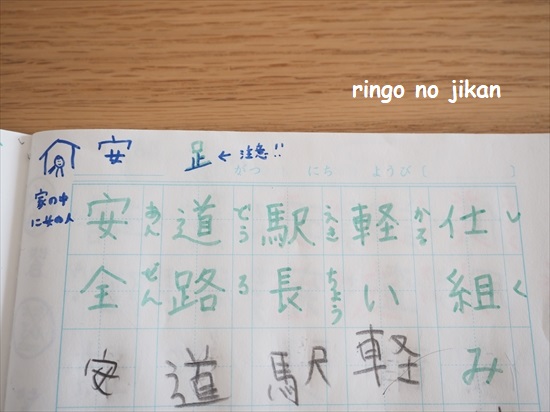 ringo no jikan
安
足 ← 注意!!
家の中
に女の人
がつ にち ようび ( )
仕組み
しく
軽い軽
かる
駅長駅
えきちょう
道路道
どうろ
安全安
あんぜん